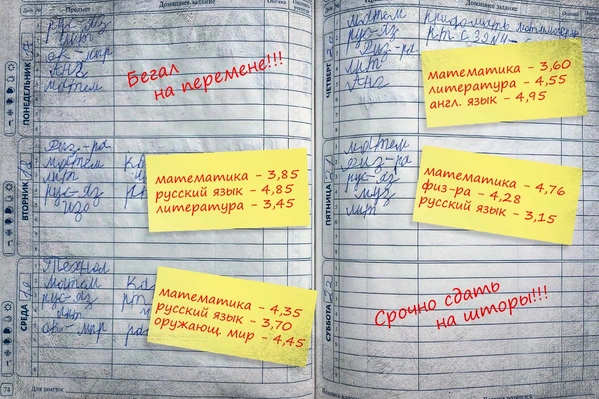 Предмет
Домашнее задание
Оценка
ПОНЕДЕЛЬНИК
рус-яз
лит
ок-мир
Анг
матем
Бегал
на перемене!!!
ВТОРНИК
Физ-ра
матем
лит
рус-яз
ИЗО
математика - 3,85
русский язык - 4,85
литература - 3,45
СРЕДА
Технол
матем
рус-яз
лит
ок-мир
математика - 4,35
русский язык - 3,70
оружающ. мир - 4,45
74
Для заметок
Домашнее задание
ЧЕТВЕРГ
матем
рус-яз
Физ-ра
лит
Анг
математика - 3,60
литература - 4,55
англ. язык - 4,95
ПЯТНИЦА
матем
физ-ра
рус-яз
муз
лит
математика - 4,76
физ-ра - 4,28
русский язык - 3,15
СУББОТА
Срочно сдать
на шторы!!!